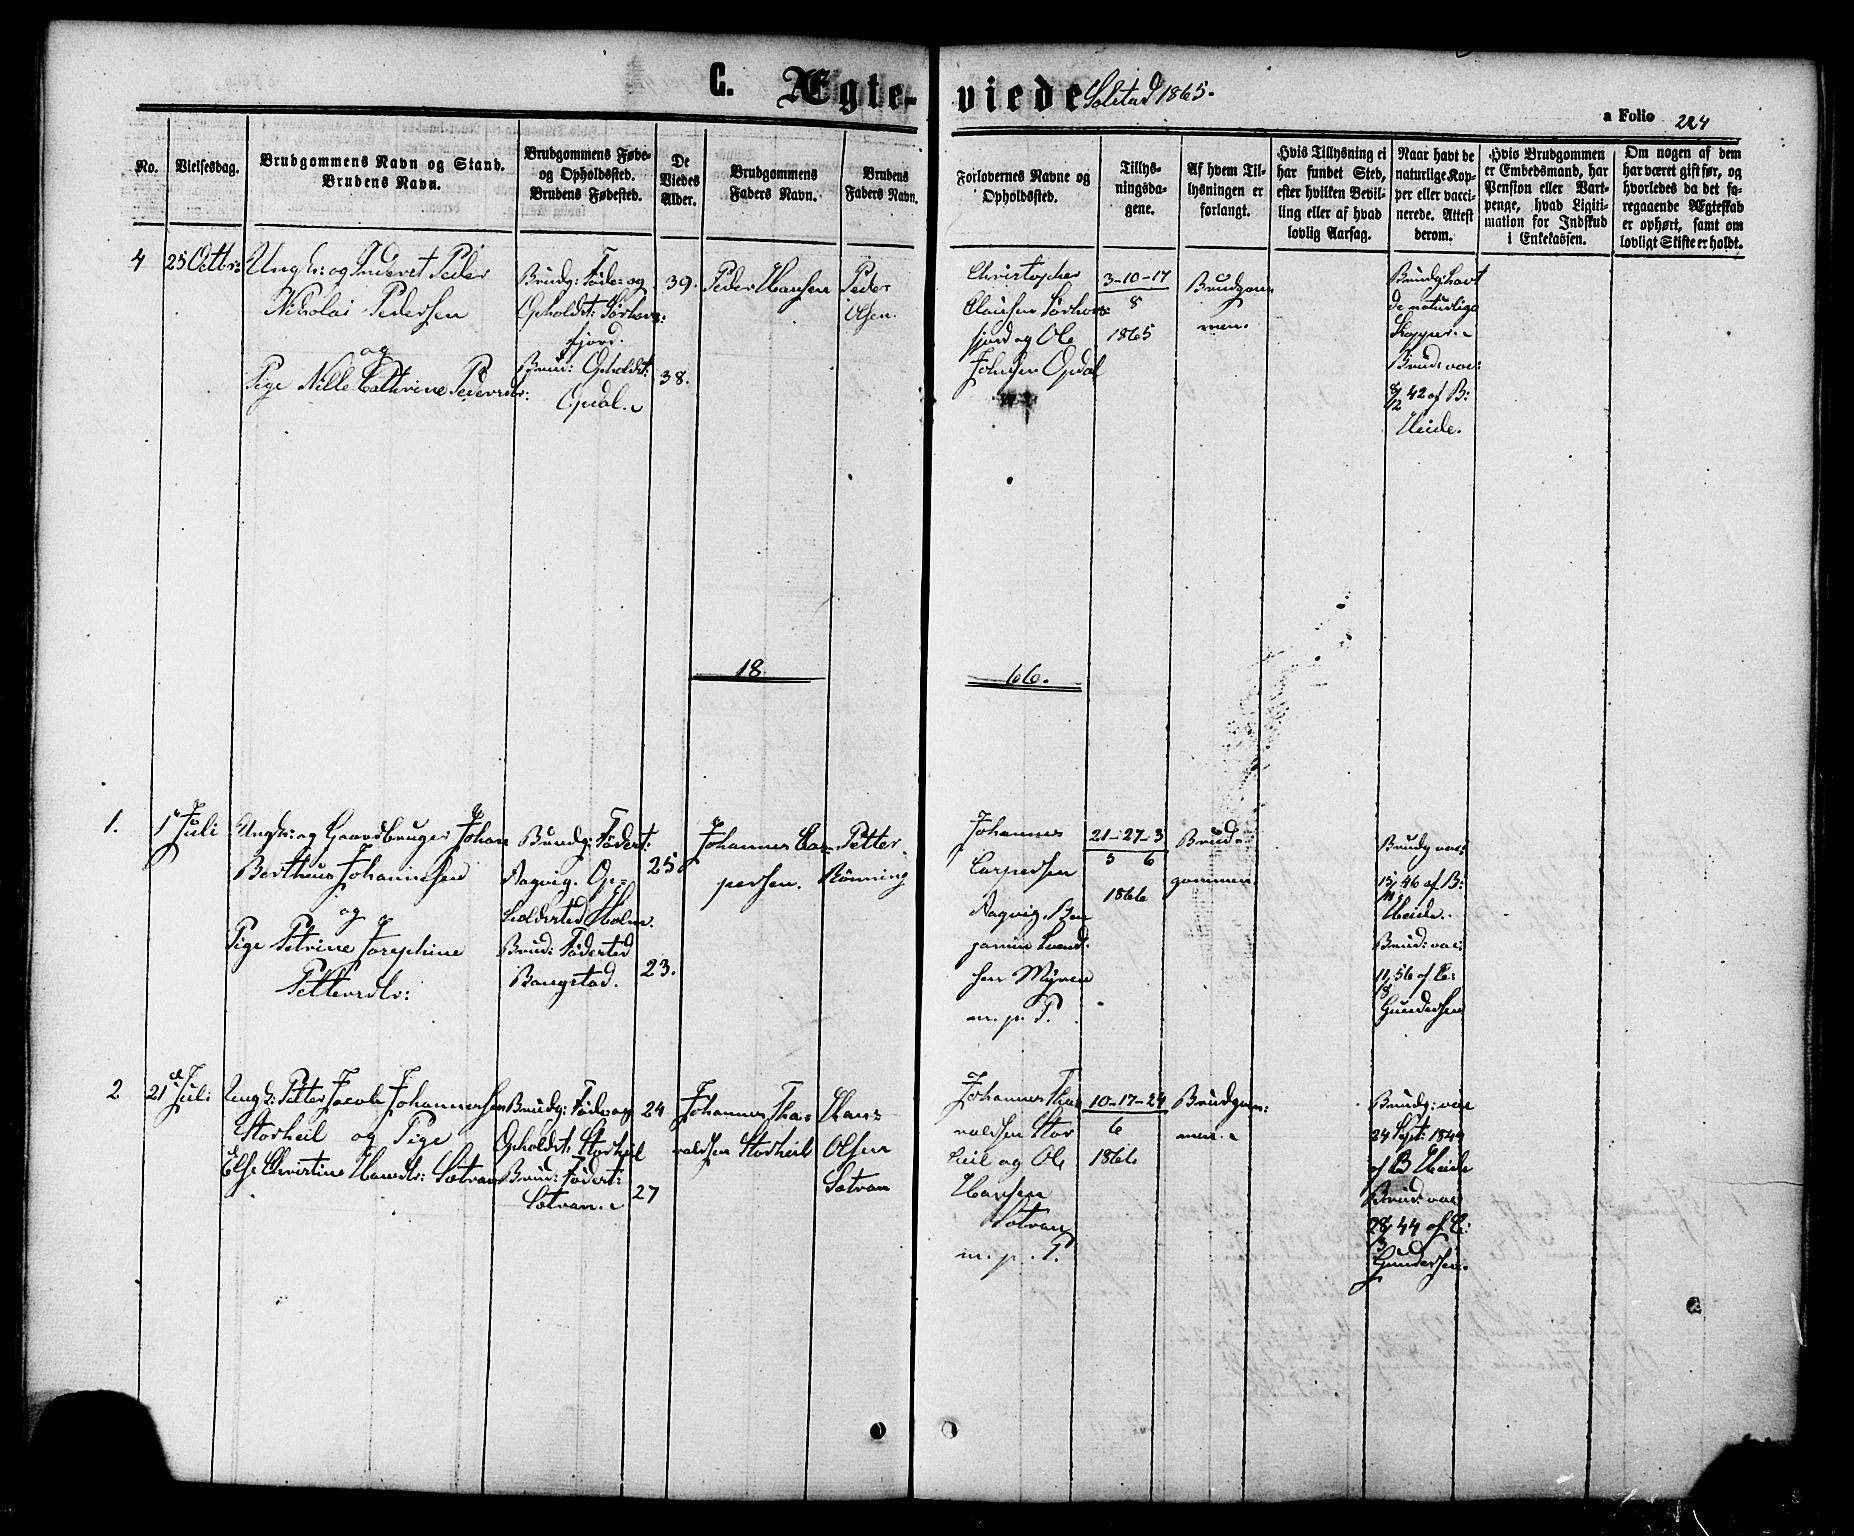 C. Ægte- viede Solstad 1865.
a Folio 224
No.
Vielsesdag.
Brudgommens Navn og Stand.
Brudens Navn.
Brudgommens Føde-
og Opholdssted.
Brudens Fødested.
De
Viedes
Alder.
Brudgommens
Faders Navn.
Brudens
Faders Navn.
Forlovernes Navne og
Opholdssted.
Tillys-
ningsda-
gene.
Af hvem Til-
lysningen er
forlangt.
Hvis Tillysning ei
har fundet Sted,
efter hvilken Bevil-
ling eller af hvad
lovlig Aarsag.
Naar havt de
naturlige Kop-
per eller vacci-
nerede. Attest
derom.
Hvis Brudgommen
er Embedsmand, har
Pension eller Vart-
penge, hvad Ligiti-
mation for Indskud
i Enkekassen.
Om nogen af dem
har været gift før, og
hvorledes da det fo-
regaaende Ægteskab
er ophørt, samt om
lovligt Skifte er holdt.
4
25 Octbr:
Ungk: og Inderst Peder
Nikolai Pedersen
og
Pige Nille Cathrine Pedersdtr:
Brudg: Føde: og
Opholdst: Sørhors:
fjord.
Brud: Opholdst:
Opdal.
39.
38.
Peder Hansen
Peder
Olsen.
Christopher
Clausen Sørhors:
fjord og Ole
Johnsen Opdal
3-10-17
8
1865
Brudgom
men.
Brudg: havt
de naturlige
Kopper.
Brud: vac:
8/12 42 af B:
Heide.
18
66.
1.
1 Juli
Ungk: og Gaardbruger Johan
Bertheus Johannesen
og
Pige Petrine Josephine
Pettersdtr:
Brudg: Fødest:
Aagvig. Op-
holdsted Holm.
Brud: Fødested
Bangstad.
25
23.
Johannes Cas-
persen.
Petter
Rønning
Johannes
Caspersen
Aagvig. Ben
jamin Svend
sen Myren
m. p. P.
21-27-3
5 6
1866
Brud-
gommen
Brudg vac:
15/11 46 af B:
Heide.
Brud: vac:
11/8 56 af C:
Gundersen
2
21 Juli
Ungk: Petter Jacob Johannesen
Storheil og Pige
Else Christine Hansdtr: Sætran
Brudg: Føde og
Opholdst: Storheil
Brud: Fødest:
Sætran.
24
27
Johannes Tha-
raldsen Storheil
Hans
Olsen
Sætran
Johannes Tha
raldsen Stor
heil og Ole
Hansen
Sætran
m. p. P.
10-17-24
6
1866
Brudgom:
men.
Brudg: vac
24 Sept: 1844
af B Heide
Brud: vac
28/3 44 af C:
Gundersen.